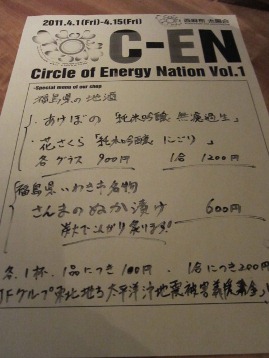 2011.4.1(Fri)-4.15(Fri)
C-EN
Circle of Energy Nation Vol.1
-Special menu of our shop
福島県の地酒
・あけぼの「純米吟醸 無濾過生」
・花さくら「純米吟醸 にごり」
各グラス 900円 1合 1200円
「福島県いわき市名物
さんまのぬか漬け 600円
各1杯、1品につき100円・1合につき200円
東北地方太平洋沖地震被害義援金